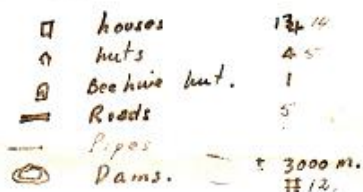 houses 14
huts 5
Beehive hut. 1
Roads 5
Pipes
Dams. 3000 m.
12.